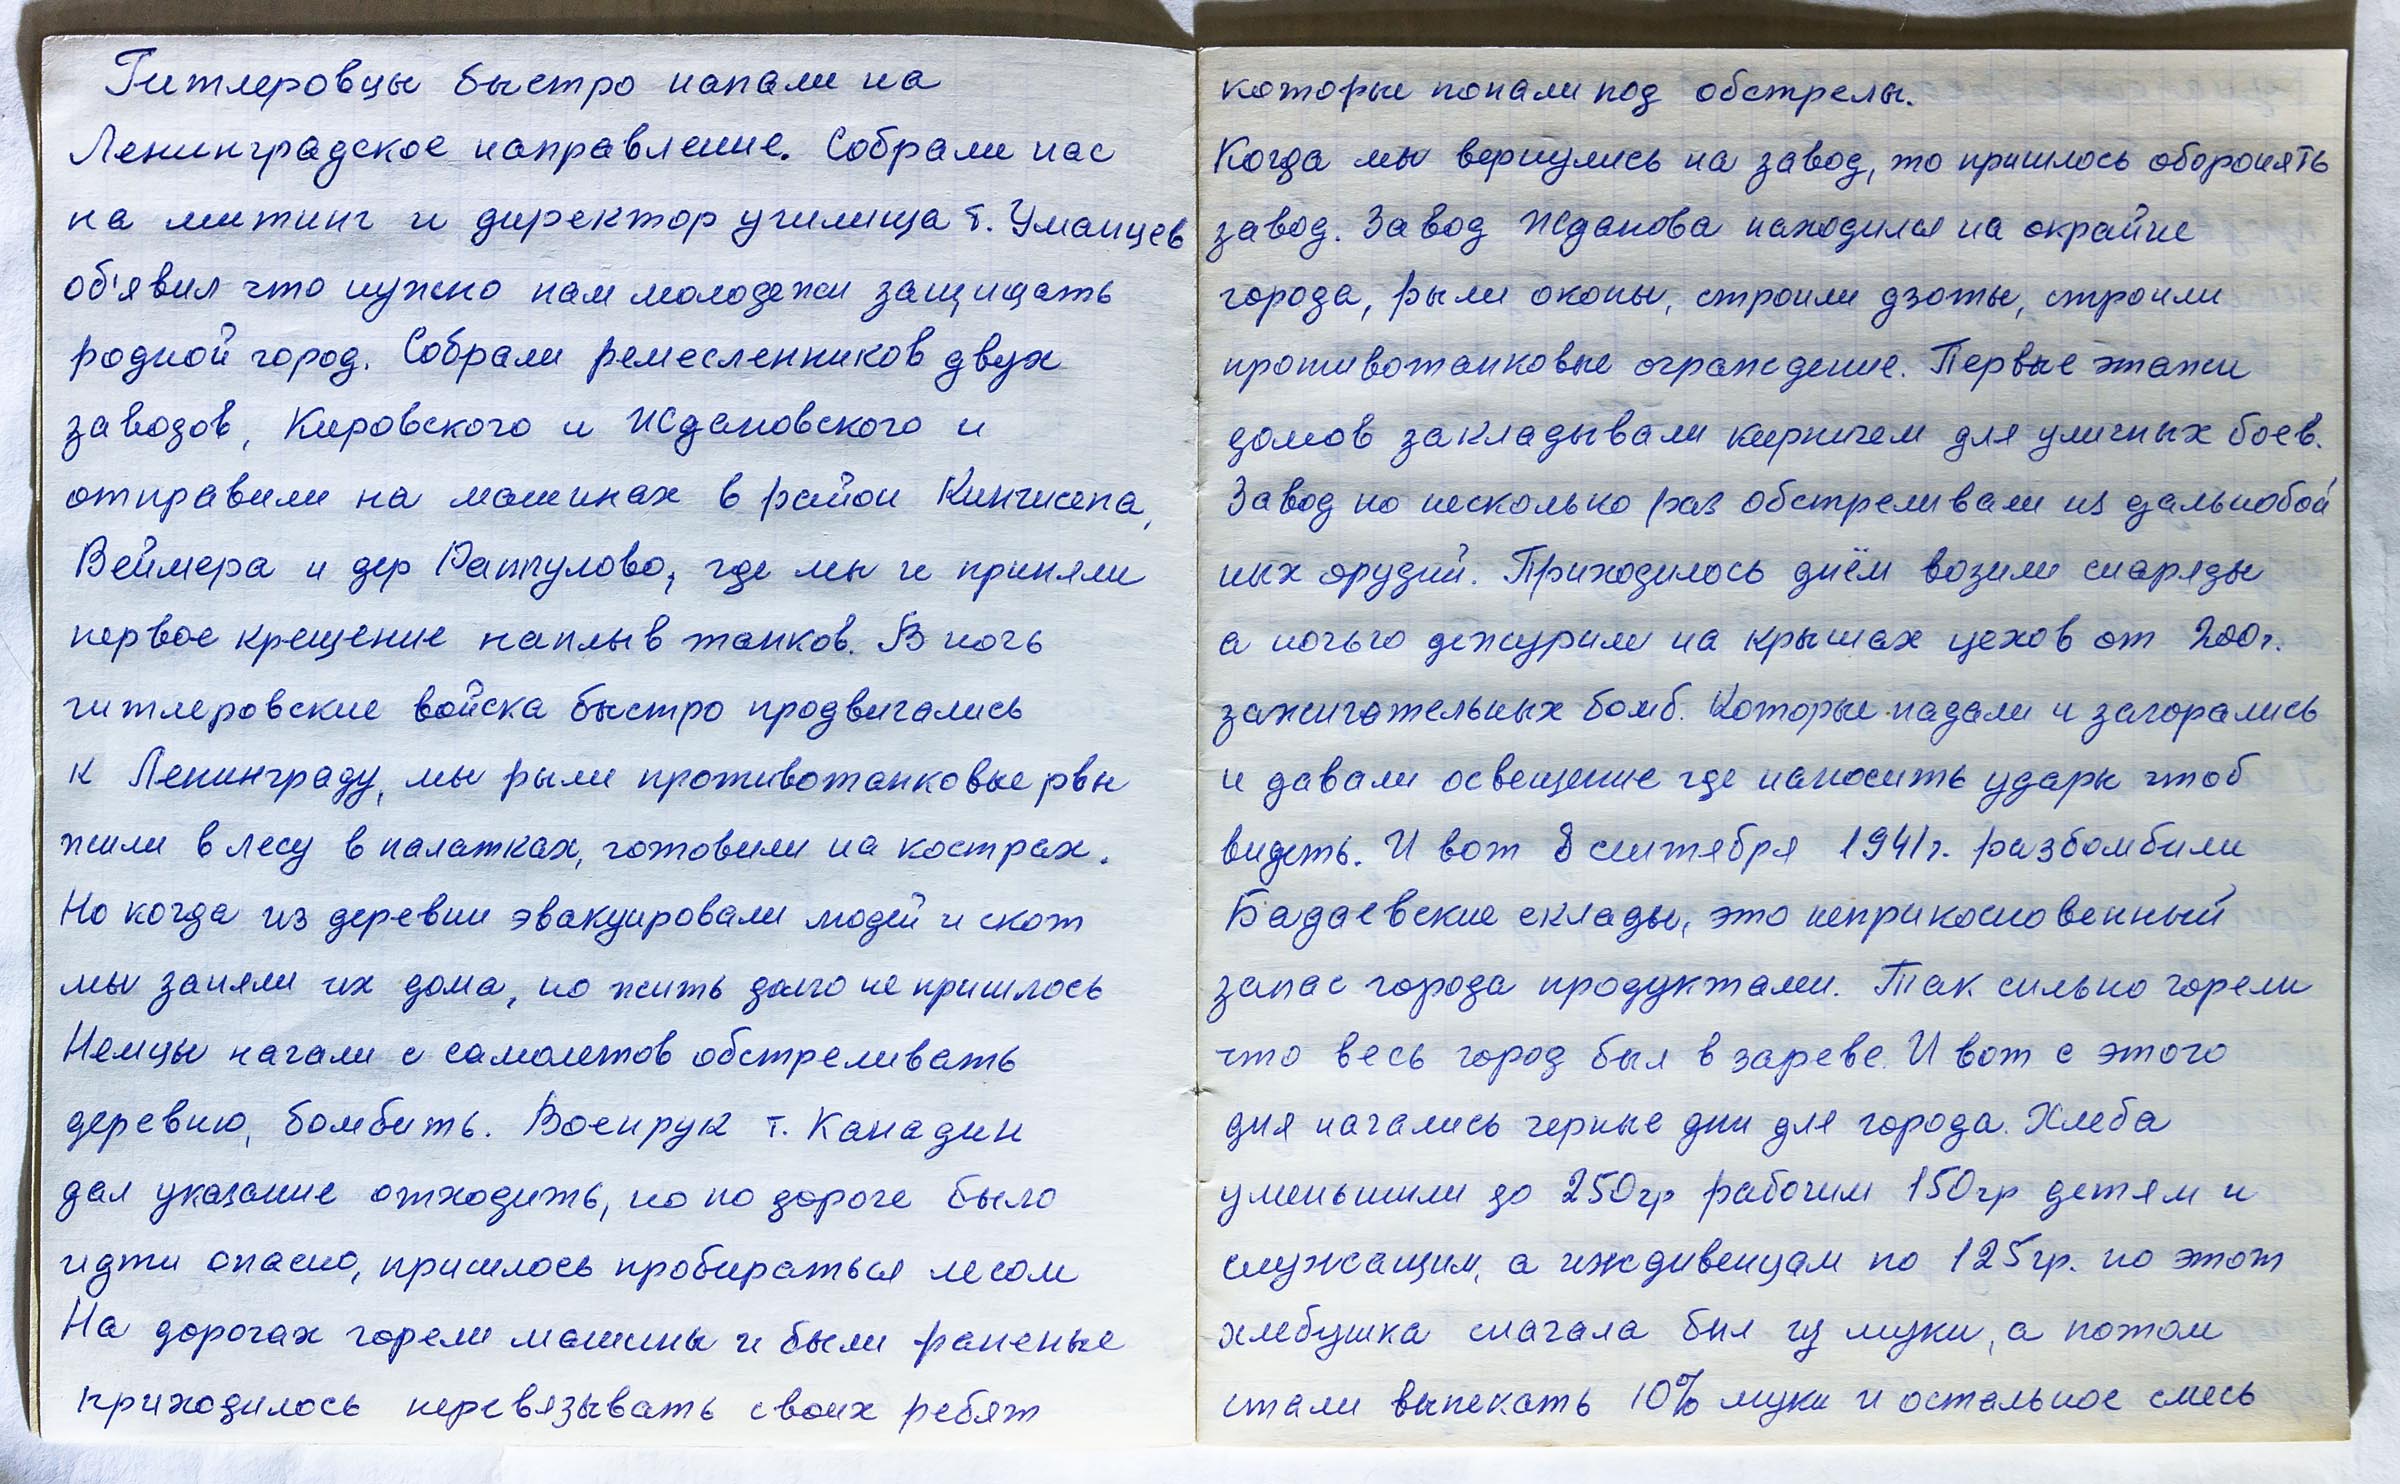 Гитлеровцы быстро напали на
Ленинградское направление. Собрали нас
на митинг и директор училища т. Уманцев
об'явил что нужно нам молодежи защищать
родной город. Собрали ремесленников двух
заводов, Кировского и Ждановского и
отправили на машинах в район Кингисепа,
Веймера и дер Раппулово, где мы и приняли
первое крещение наплыв танков. В ночь
гитлеровские войска быстро продвигались
к Ленинграду, мы рыли противотанковые рвы
жили в лесу в палатках, готовили на кострах.
Но когда из деревни эвакуировали людей и скот
мы заняли их дома, но жить долго не пришлось
Немцы начали с самолетов обстреливать
деревню, бомбить. Военрук т. Канадин
дал указание отходить, но по дороге было
идти опасно, пришлось пробираться лесом
На дорогах горели машины и были раненые
приходилось перевязывать своих ребят
которые попали под обстрелы.
Когда мы вернулись на завод, то пришлось оборонять
завод. Завод Жданова находился на окрайне
города, рыли окопы, строили дзоты, строили
противотанковые ограждение. Первые этажи
домов закладывали кирпичем для уличных боев.
Завод по несколько раз обстреливали из дальнобой
ных орудий. Приходилось днём возили снаряды
а ночью дежурили на крышах цехов от 200г.
зажигательных бомб. Которые падали и загорались
и давали освещение где наносить удары чтоб
видеть. И вот 8 сентября 1941г. разбомбили
Бадаевские склады, это неприкосновенный
запас города продуктами. Так сильно горели
что весь город был в зареве. И вот с этого
дня начались черные дни для города. Хлеба
уменьшили до 250гр рабочим 150гр детям и
служащим, а иждивенцам по 125гр. но этот
хлебушка сначала был из муки, а потом
стали выпекать 10% муки и остальное смесь